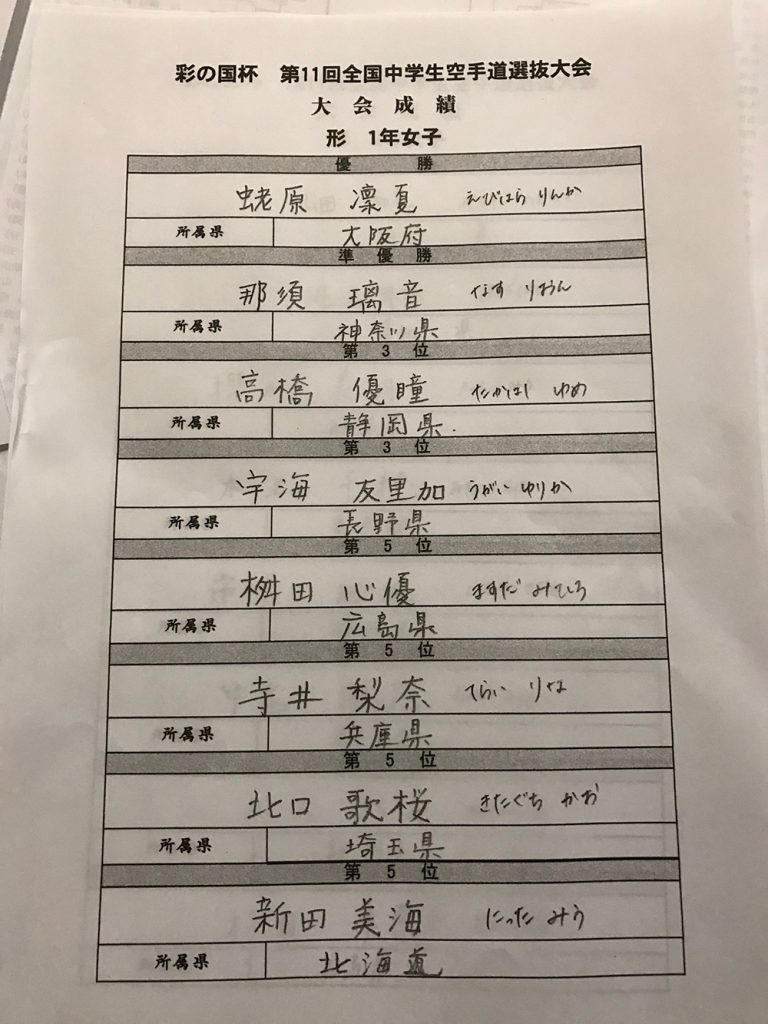 彩の国杯 第11回全国中学生空手道選抜大会
大会成績
形 1年女子
優勝
蛯原 凜夏 えびはら りんか
所属県 大阪府
準優勝
那須 璃音 なす りおん
所属県 神奈川県
第3位
高橋 優瞳 たかはし ゆめ
所属県 静岡県
第3位
宇海 友里加 うがい ゆりか
所属県 長野県
第5位
桝田 心優 ますだ
所属県 広島県
第5位
寺井 梨奈 てらい りな
所属県 兵庫県
第5位
北口 歌桜 きたぐち かお
所属県 埼玉県
第5位
新田 美海 にった みう
所属県 北海道